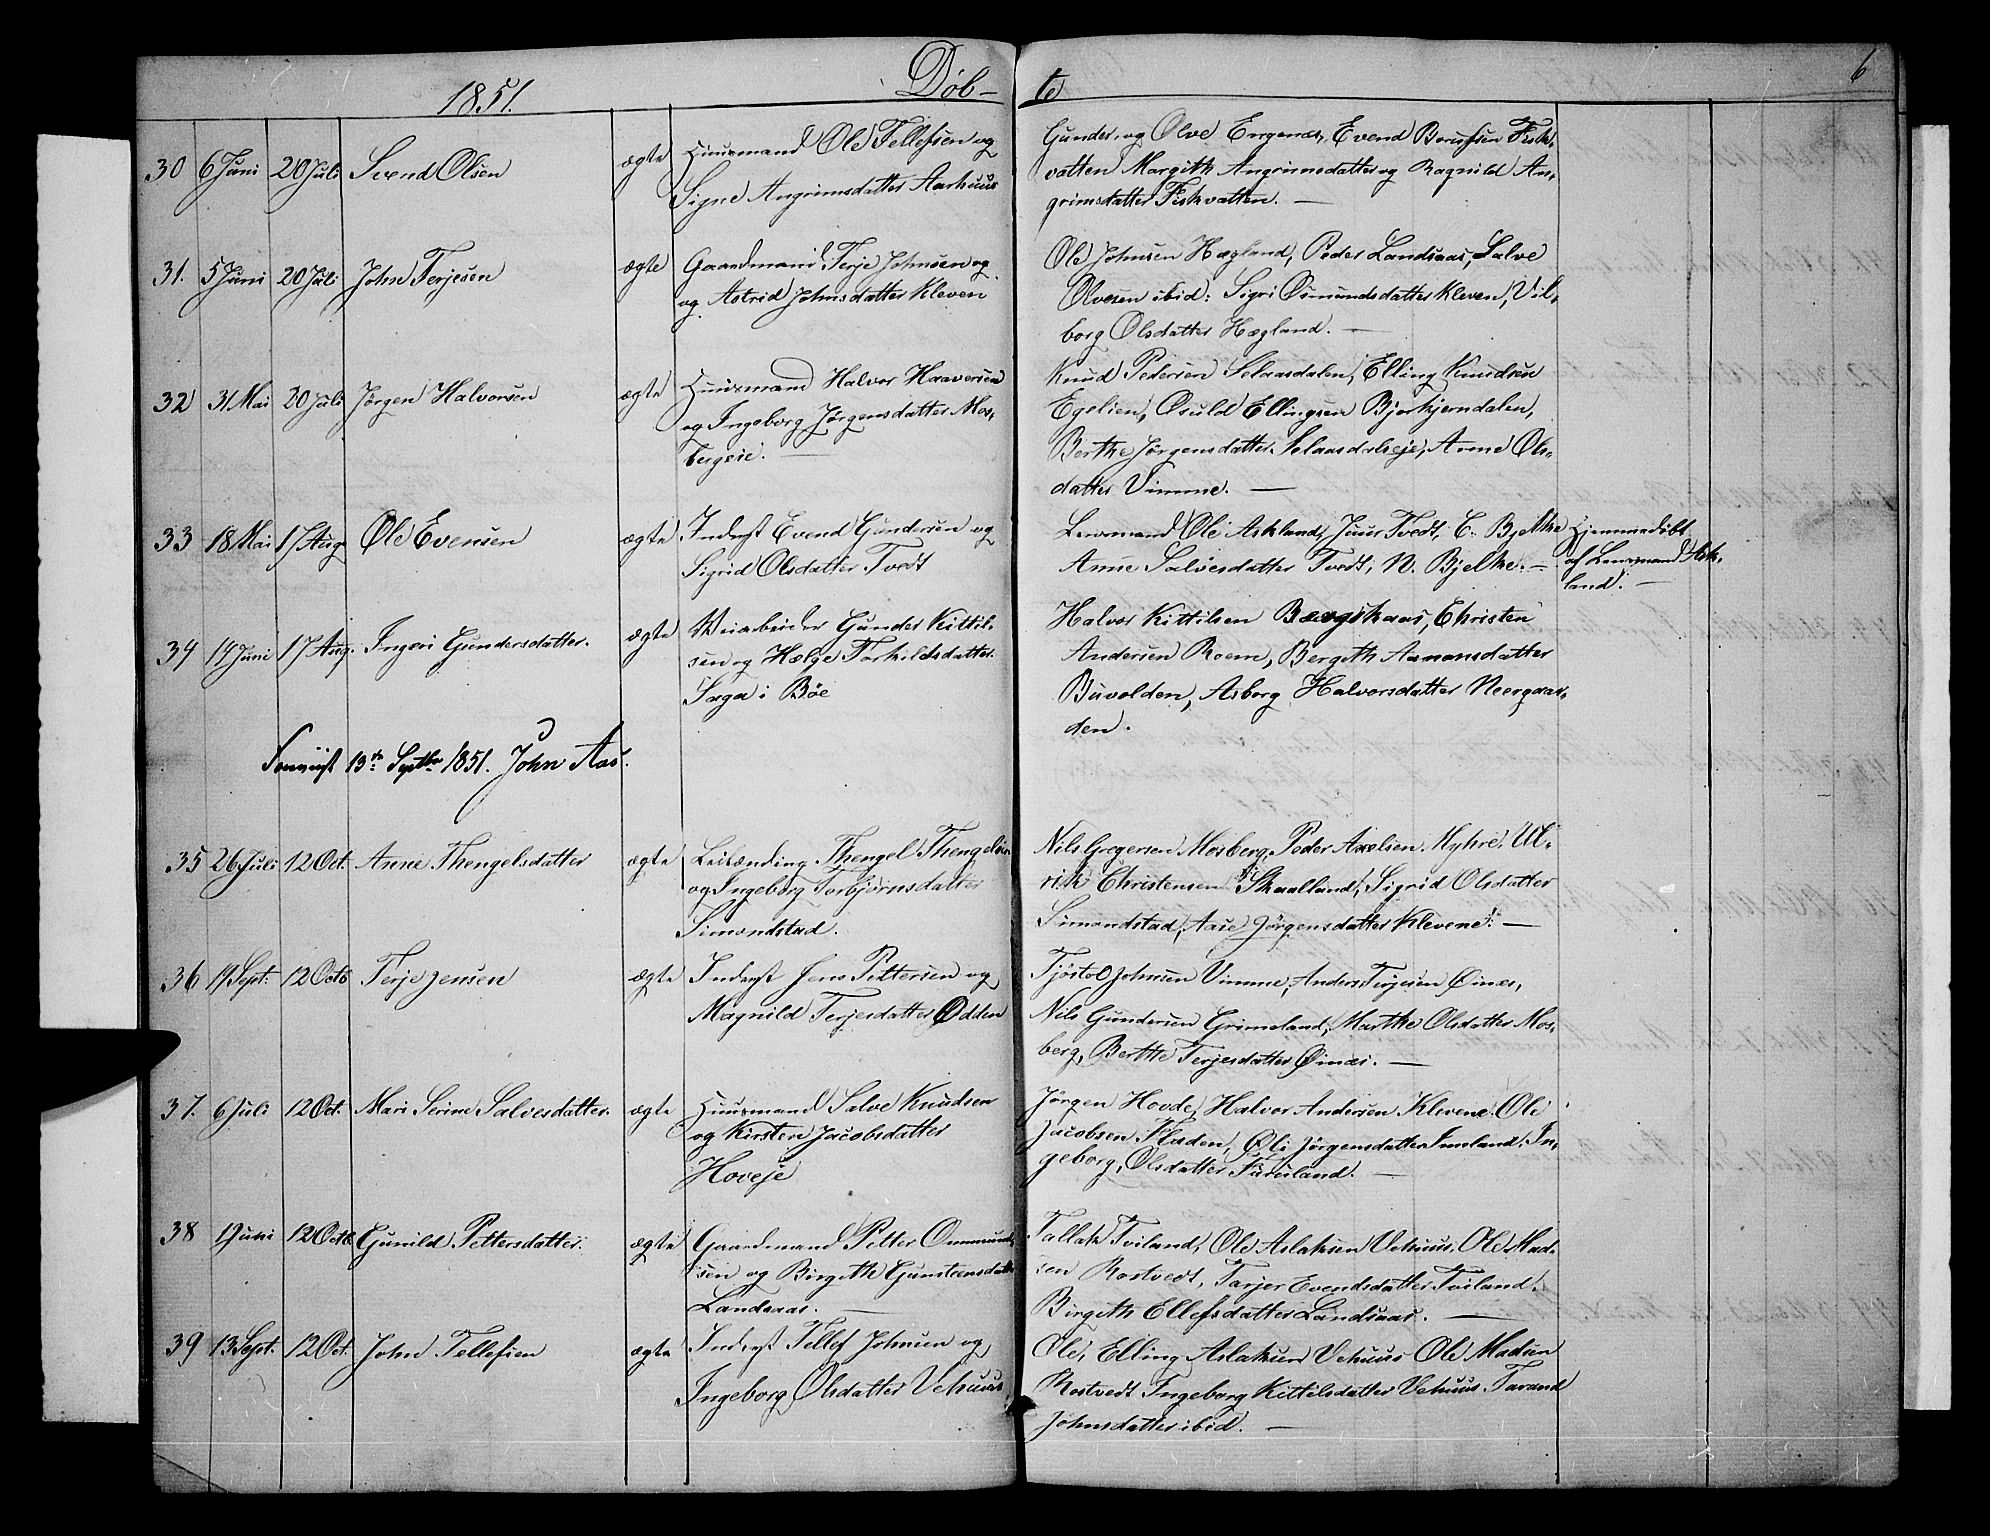 1851. Döb- te 6
30 6 Juni 20 Juli Svend Olsen ægte Huusmand Ole Tellefsen og
Signe Angrimsdatter Aarhuus
Gunder og Olve Engenæs, Evend Fisk-
vatten Margith Angrimsdatter og Ragnild An-
grimsdatter Fiskvatten. —
31. 5 Juni 20 Juli John Terjesen ægte Gaardmand Terje Johnsen og
og Astrid Johnsdatter Kleven
Ole Johnsen Hægland, Peder Landsaas, Salve
Olvesen ibid: Sigri Osmundsdatter Kleven, Vil-
borg Olsdatter Hægland. —
32 31 Mai 20 Juli Jörgen Halvorsen ægte Huusmand Halvor Haaversen
og Ingeborg Jörgensdatter Mos-
bergeie. —
Knud Pedersen Selaasdalen, Elling Knudsen
Egelien, Osuld Ellingsen Bjorkjerndalen,
Berthe Jörgensdatter Selaasdalseje, Anne Ols-
datter Vimme. —
33 18 Mai 17 Aug Ole Evensen ægte Inderst Evend Gundersen og
Sigrid Olsdatter Tvedt
Lensmand Ole Askland, Juur Tvedt, E. Bjelke
Anne Salvesdatter Tvedt, N. Bjelke. —
Hjemmedöbt
af Lensmand Ask-
land. —
34 14 Juni 17 Aug. Ingeri Gundersdatter. ægte Veiarbeider Gunder Kittil-
sen og Hælge Torkildsdatter
Saga i Böe
Halvor Kittilsen Christen
Andersen Roem, Bergith Aamonsdatter
Buvolden, Asborg Halvorsdatter Neergaar-
den.
13de Septbr 1851. John Aas.
35 26 Juli 12 Oct. Anne Thengelsdatter ægte Leilænding Thengel Thengelsen
og Ingeborg Torbjörnsdatter
Simonstad.
Nils Gregersen Mosberg, Peder Axelsen Myhre, Ul-
rik Christensen Skaalland, Sigrid Olsdatter
Simonstad, Aase Jörgensdatter Klevene. —
36 19 Sept. 12 Octb Terje Jensen ægte Inderst Jens Pettersen og
Magnild Terjesdatter Odden
Tjöstol Johnsen Vimme, Anders Terjesen Öinæs,
Nils Gundersen Grimeland, Marthe Olsdatter Mos-
berg, Berthe Terjesdatter Öinæs. —
37. 6 Juli 12 Oct. Mari Serine Salvesdatter. ægte Huusmand Salve Knudsen
og Kirsten Jacobsdatter
Hoveje
Jörgen Hovde, Halvor Andersen Klevene. Ole
Jacobsen Fladen, Jörgensdatter In-
geborg, Olsdatter —
38 1 Juni 12 Octb Gunild Pettersdatter. ægte Gaardmand Petter Ommund-
sen og Birgith Gunsteensdatter
Landsaas. —
Tallak Tviland, Ole Aslaksen Vehuus. Ole Mad-
sen Rostvedt, Tarjer Evendsdatter Tviland.
Birgith Ellefsdatter Landsaas. —
39 13 Sept. 12 Oct. John Tellefsen ægte Inderst Tellef Johnsen og
Ingeborg Olsdatter Vehuus
Ole, Elling Aslaksen Vehuus Ole Madsen
Rostvedt Ingeborg Kittilsdatter Vehuus. Tarand
Johnsdatter ibid. —